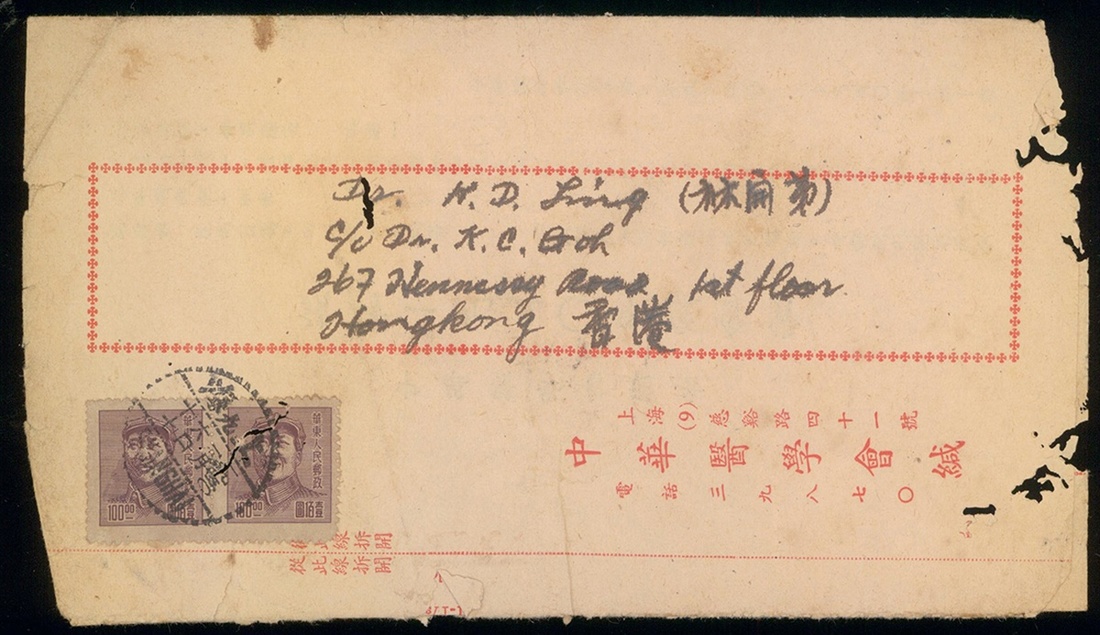 Dr. H. D. Ling (林 弟)
c/o Dr. K. C. Goh
267 Hennessy Road 1st floor
Hongkong 香港
上海(9)慈谿路四十一號
中華醫學會緘
電話三九八七〇
華東人民郵政
100.00 壹佰圓
100.00 壹佰圓
從此線拆開
從此線拆開